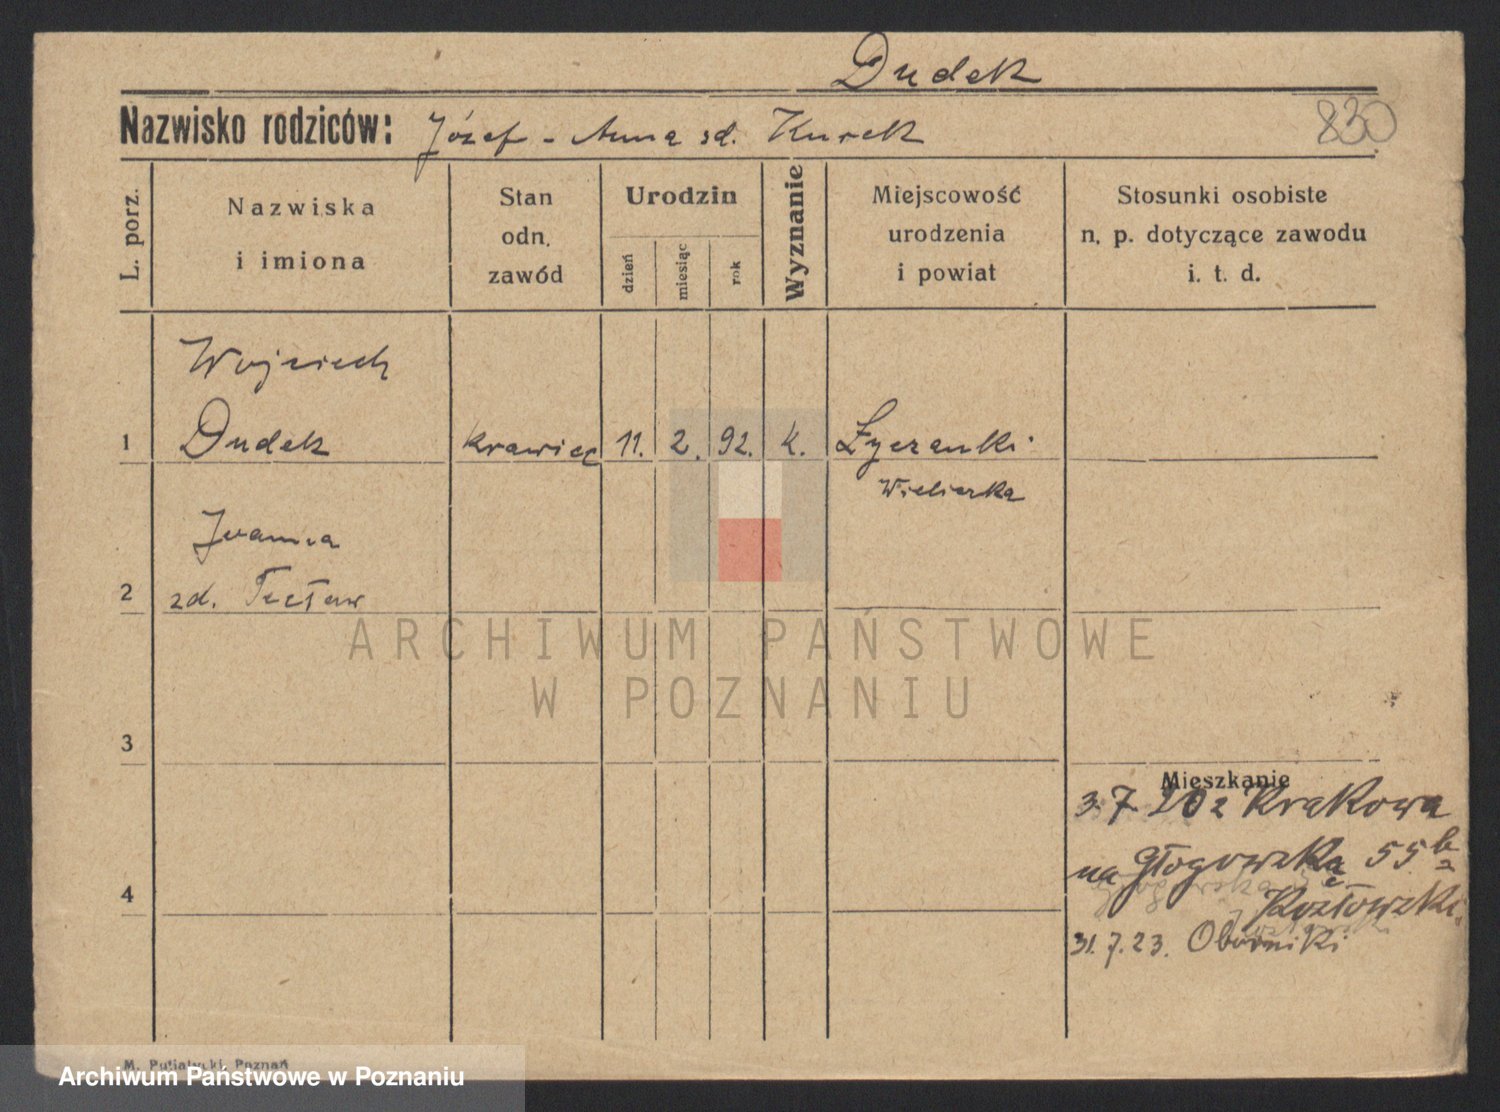 Dudek
Nazwisko rodziców: Józef - Anna zd. Kurek
830
L. porz.
Nazwiska
i imiona
Stan
odn.
zawód
Urodzin
dzień
miesiąc
rok
Wyznanie
Miejscowość
urodzenia
i powiat
Stosunki osobiste
n. p. dotyczące zawodu
i. t. d.
Wojciech
1 Dudek krawiec 11. 2. 92. k.
Wieliczka
Joanna
2 zd.
ARCHIWUM PAŃSTWOWE
W POZNANIU
3
Mieszkanie
3.7.20 z Krakowa
na Głogowska 55b
4
Kozłowski
31.7.23. Oborniki
M. Putiatycki, Poznań
Archiwum Państwowe w Poznaniu